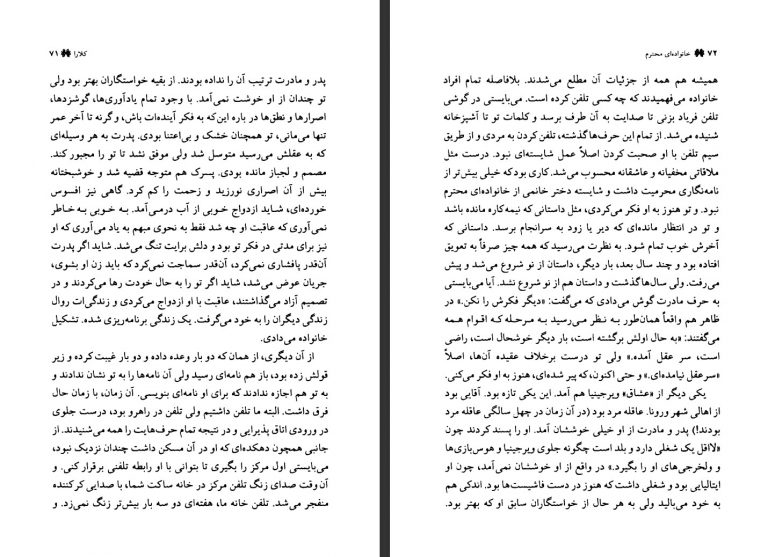 کلارا ۷۱
پدر و مادرت ترتیب آن را نداده بودند. از بقیه خواستگاران بهتر بود ولی
تو چندان از او خوشت نمی‌آمد. با وجود تمام یادآوری‌ها، گوشزدها،
اصرارها و نطق‌ها در باره این‌که به فکر آینده‌ات باش، و گرنه تا آخر عمر
تنها می‌مانی، تو همچنان خشک و بی‌اعتنا بودی. پدرت به هر وسیله‌ای
که به عقلش می‌رسید متوسل شد ولی موفق نشد تا تو را مجبور کند.
مصمم و لجباز مانده بودی. پسرک هم متوجه قضیه شد و خوشبختانه
بیش از آن اصراری نورزید و زحمت را کم کرد. گاهی نیز افسوس
خورده‌ای، شاید ازدواج خوبی از آب درمی‌آمد. به خوبی به خاطر
نمی‌آوری که عاقبت او چه شد فقط به نحوی مبهم به یاد می‌آوری که او
نیز برای مدتی در فکر تو بود و دلش برایت تنگ می‌شد. شاید اگر پدرت
آن‌قدر پافشاری نمی‌کرد، آن‌قدر سماجت نمی‌کرد که باید زن او بشوی،
جریان عوض می‌شد، شاید اگر تو را به حال خودت رها می‌کردند و در
تصمیم آزاد می‌گذاشتند، عاقبت با او ازدواج می‌کردی و زندگی‌ات روال
زندگی دیگران را به خود می‌گرفت. یک زندگی برنامه‌ریزی شده. تشکیل
خانواده می‌دادی.
از آن دیگری، از همان که دو بار وعده داده و دو بار غیبت کرده و زیر
قولش زده بود، باز هم نامه‌ای رسید ولی آن نامه‌ها را به تو نشان ندادند و
به تو هم اجازه ندادند که برای او نامه‌ای بنویسی. آن زمان، با زمان حال
فرق داشت. البته ما تلفن داشتیم ولی تلفن در راهرو بود، درست جلوی
در ورودی اتاق پذیرایی و در نتیجه تمام حرف‌هایت را همه می‌شنیدند. از
جانبی همچون دهکده‌ای که او در آن مسکن داشت چندان نزدیک نبود،
می‌بایستی اول مرکز را بگیری تا بتوانی با او رابطه تلفنی برقرار کنی. و
آن وقت صدای زنگ تلفن مرکز در خانه ساکت شما، با صدایی کر کننده
منفجر می‌شد. تلفن خانه ما، هفته‌ای دو سه بار بیش‌تر زنگ نمی‌زد. و
۷۲ خانواده‌ای محترم
همیشه هم همه از جزئیات آن مطلع می‌شدند. بلافاصله تمام افراد
خانواده می‌فهمیدند که چه کسی تلفن کرده است. می‌بایستی در گوشی
تلفن فریاد بزنی تا صدایت به آن طرف برسد و کلمات تو تا آشپزخانه
شنیده می‌شد. از تمام این حرف‌ها گذشته، تلفن کردن به مردی و از طریق
سیم تلفن با او صحبت کردن اصلاً عمل شایسته‌ای نبود. درست مثل
ملاقاتی مخفیانه و عاشقانه محسوب می‌شد. کاری بود که خیلی بیش‌تر از
نامه‌نگاری محرمیت داشت و شایسته دختر خانمی از خانواده‌ای محترم
نبود. و تو هنوز به او فکر می‌کردی، مثل داستانی که نیمه‌کاره مانده باشد
و تو در انتظار مانده‌ای که دیر یا زود به سرانجام برسد. داستانی که
آخرش خوب تمام شود. به نظرت می‌رسید که همه چیز صرفاً به تعویق
افتاده بود و چند سال بعد، بار دیگر، داستان از نو شروع می‌شد و پیش
می‌رفت. ولی سال‌ها گذشت و داستان هم از نو شروع نشد. آیا می‌بایستی
به حرف مادرت گوش می‌دادی که می‌گفت: «دیگر فکرش را نکن.» در
ظاهر هم واقعاً همان‌طور به نظر می‌رسید به مرحله که اقوام همه
می‌گفتند: «به حال اولش برگشته است، بار دیگر خوشحال است، راضی
است، سر عقل آمده.» ولی تو درست برخلاف عقیده آن‌ها، اصلاً
«سرعقل نیامده‌ای.» و حتی اکنون، که پیر شده‌ای، هنوز به او فکر می‌کنی.
یکی دیگر از «عشاق» ویرجینیا هم آمد. این یکی تازه بود. آقایی بود
از اهالی شهر ورونا. عاقله مرد بود (در آن زمان در چهل سالگی عاقله مرد
بودند!) پدر و مادرت از او خیلی خوششان آمد. او را پسند کردند چون
«لااقل یک شغلی دارد و بلد است چگونه جلوی ویرجینیا و هوس‌بازی‌ها
و ولخرجی‌های او را بگیرد.» در واقع از او خوششان نمی‌آمد، چون او
ایتالیایی بود و شغلی داشت که هنوز در دست فاشیست‌ها بود. اندکی هم
به خود می‌بالید ولی به هر حال از خواستگاران سابق او که بهتر بود.